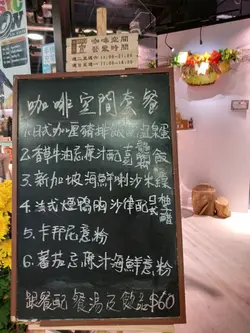 咖啡空間
營業時間
咖啡空間套餐
1.日式咖喱豬排飯
2.香草牛油忌廉汁配
3.新加坡海鮮喇沙米線
4.法式煙鴨肉沙律配
5.卡邦尼意粉
6.蕃茄忌廉汁海鮮意粉
跟餐配 餐湯及飲品 $60